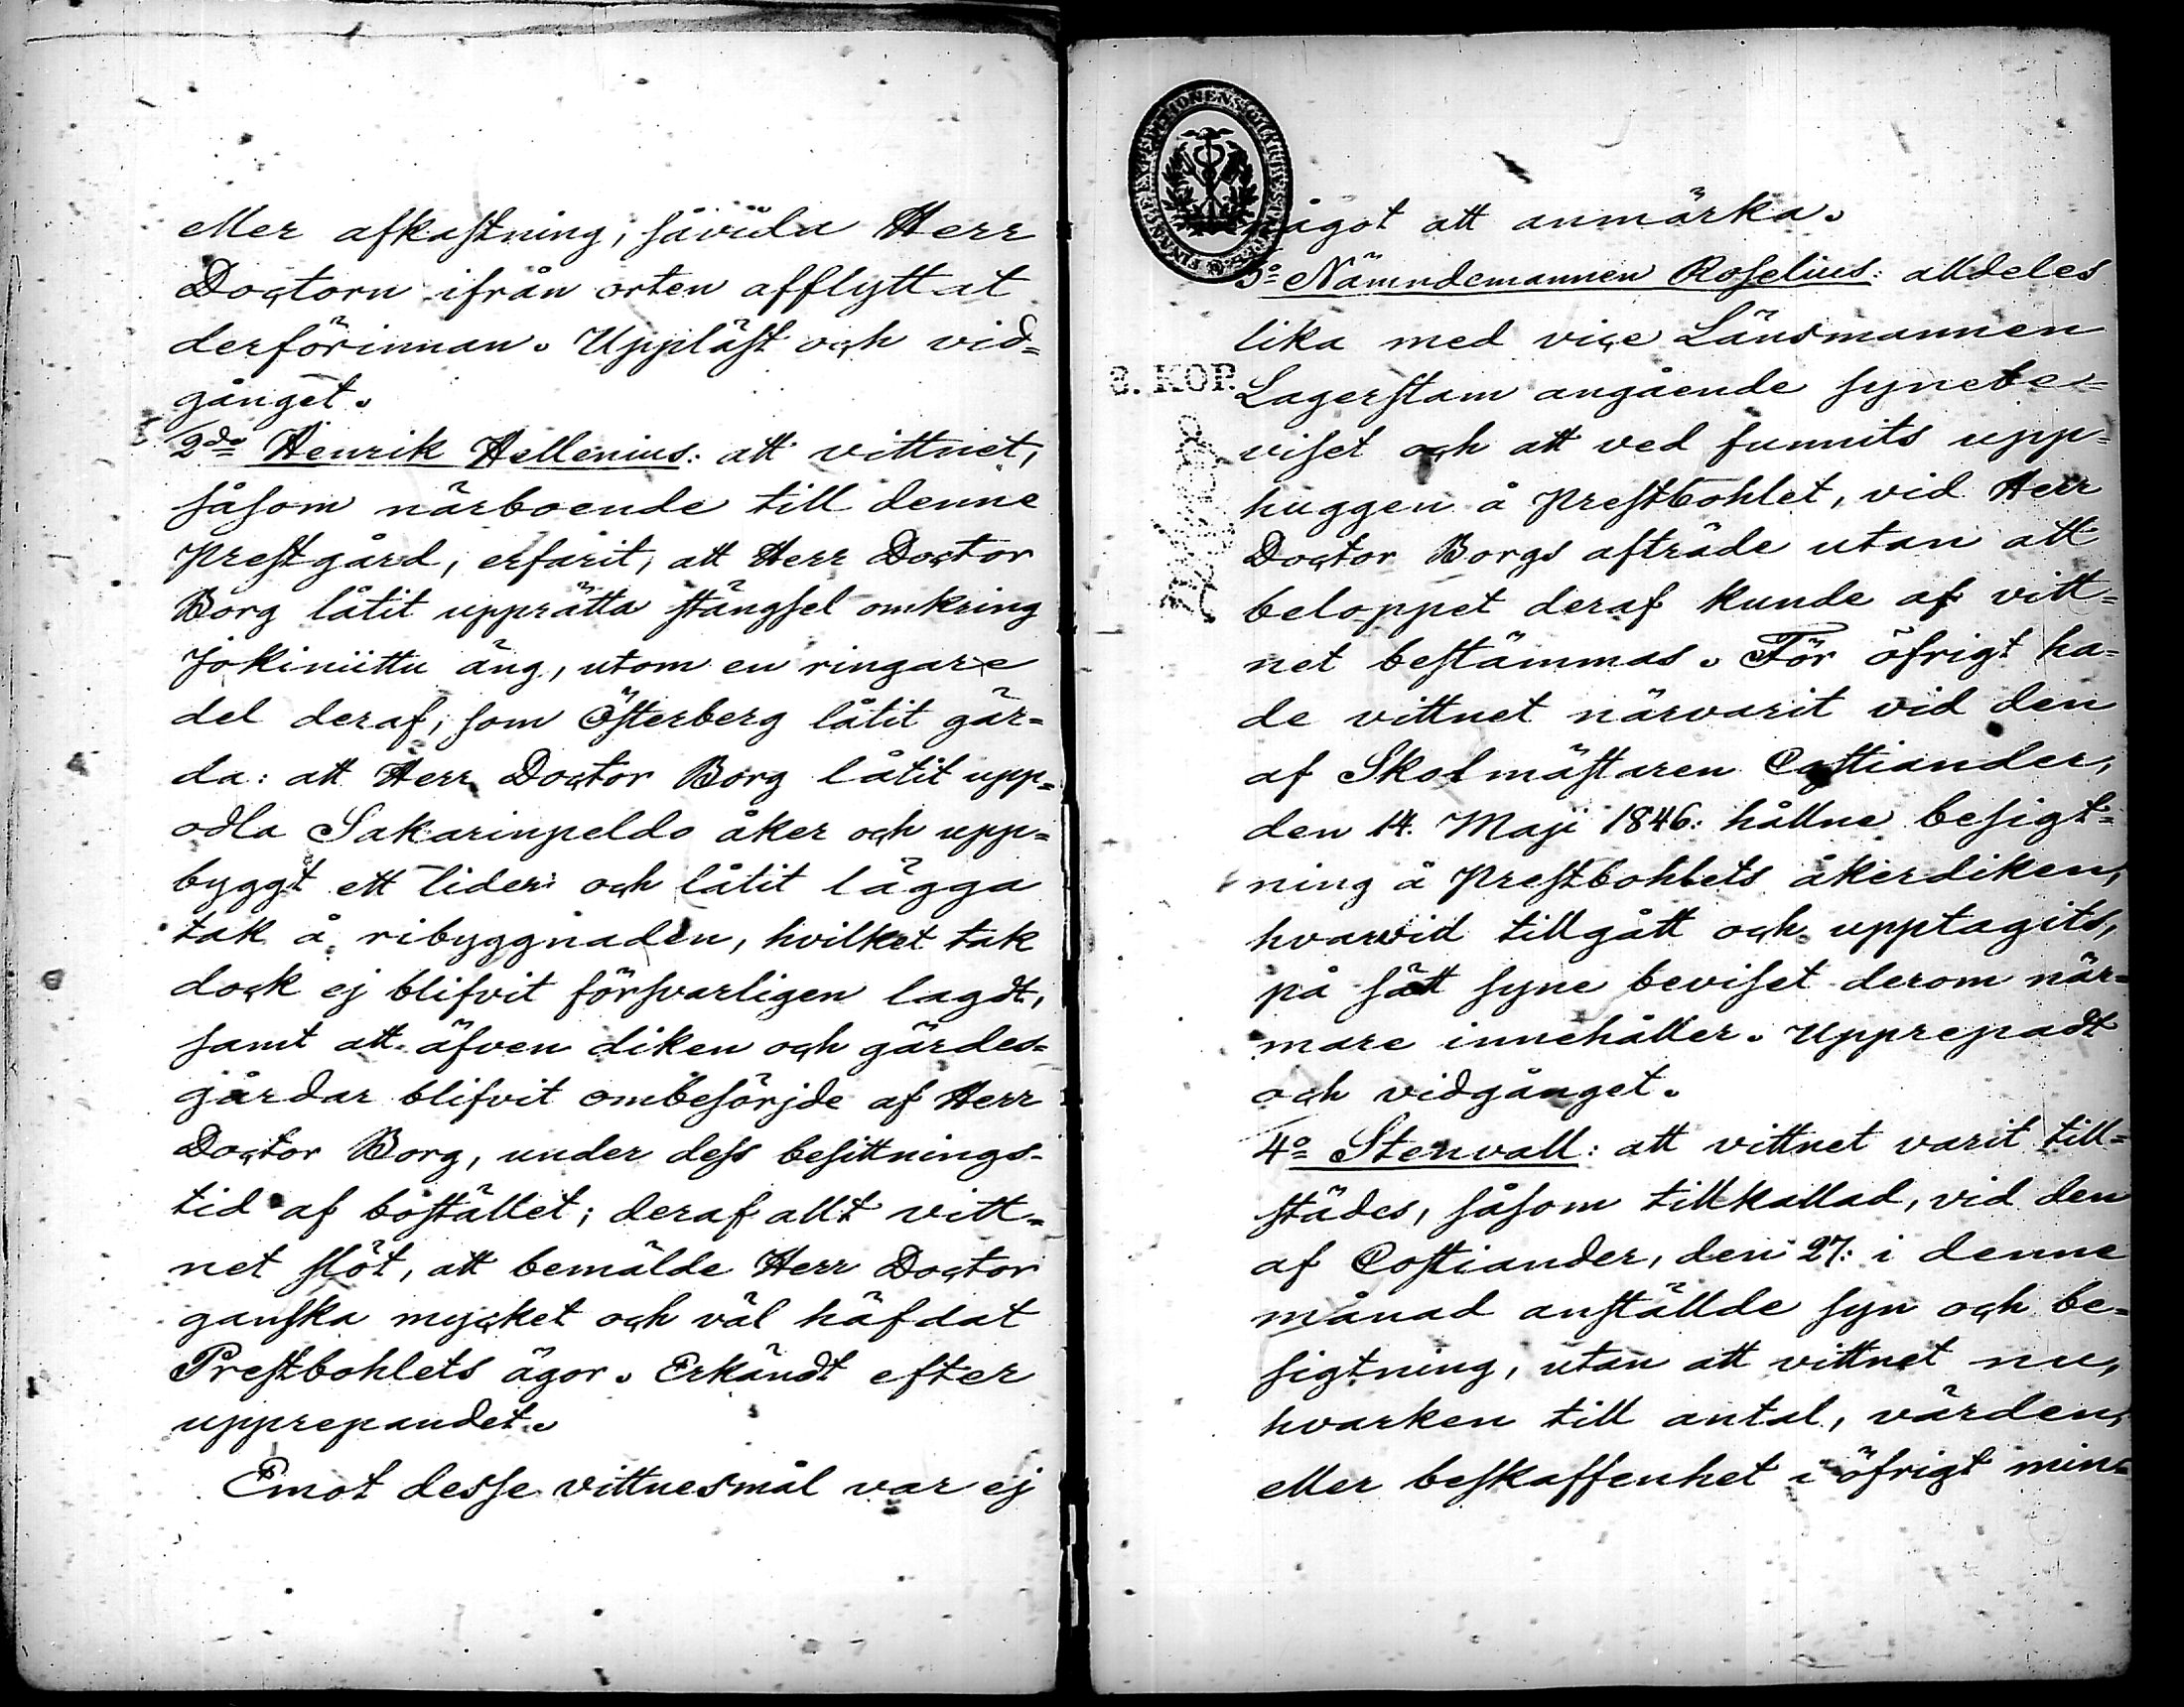 eller afkastning, såvida Herr
Doctorn ifrån orten afflyttat
derförinnan. Uppläst och vid=
gånget.
2do Henrik Hellenius: att vittnet,
såsom närboende till denne
Prestgård, erfarit, att Herr Doctor
Borg låtit upprätta stängsel omkring
Jokiniittu äng, utom en ringare
del deraf, som Österberg låtit gär=
da: att Herr Doctor Borg låtit upp=
odla Sakarinpeldo åker och upp=
byggt ett lider och låtit lägga
tak å ribyggnaden, hvilket tak
dock ej blifvit försvarligen lagdt,
samt att äfven diken och gärdes=
gårdar blifvit ombesörjde af Herr
Doctor Borg, under dess besittnings-
tid af boställlet; deraf allt vitt=
net slöt, att bemälde Herr Doctor
ganska mycket och väl häfdat
Prestbohlets ägor. Erkändt efter
upprepandet.
Emot desse vittnesmål var ej
något att anmärka.
3o Nämndemannen Roselius: alldeles
lika med vice Länsmannen
3. KOP.
Lagerstam angående synebe=
viset och att ved funnits upp=
huggen å Prestbohlet, vid Herr
Doctor Borgs afträde utan att
beloppet deraf kunde af vitt=
net bestämmas. För öfrigt ha=
de vittnet närvarit vid den
af Skolmästaren Costiander,
den 14. Maji 1846: hållne besigt=
ning å Prestbohlets åkerdiken,
hvarvid tillgått och upptagits,
på sätt syne beviset derom när=
mare innehåller. Upprepadt
och vidgånget.
4o Stenvall: att vittnet varit till=
städes, såsom tillkallad, vid den
af Costiander, den 27: i denne
månad anställde syn och be=
sigtning, utan att vittnet nu,
hvarken till antal, värden,
eller beskaffenhet i öfrigt min=